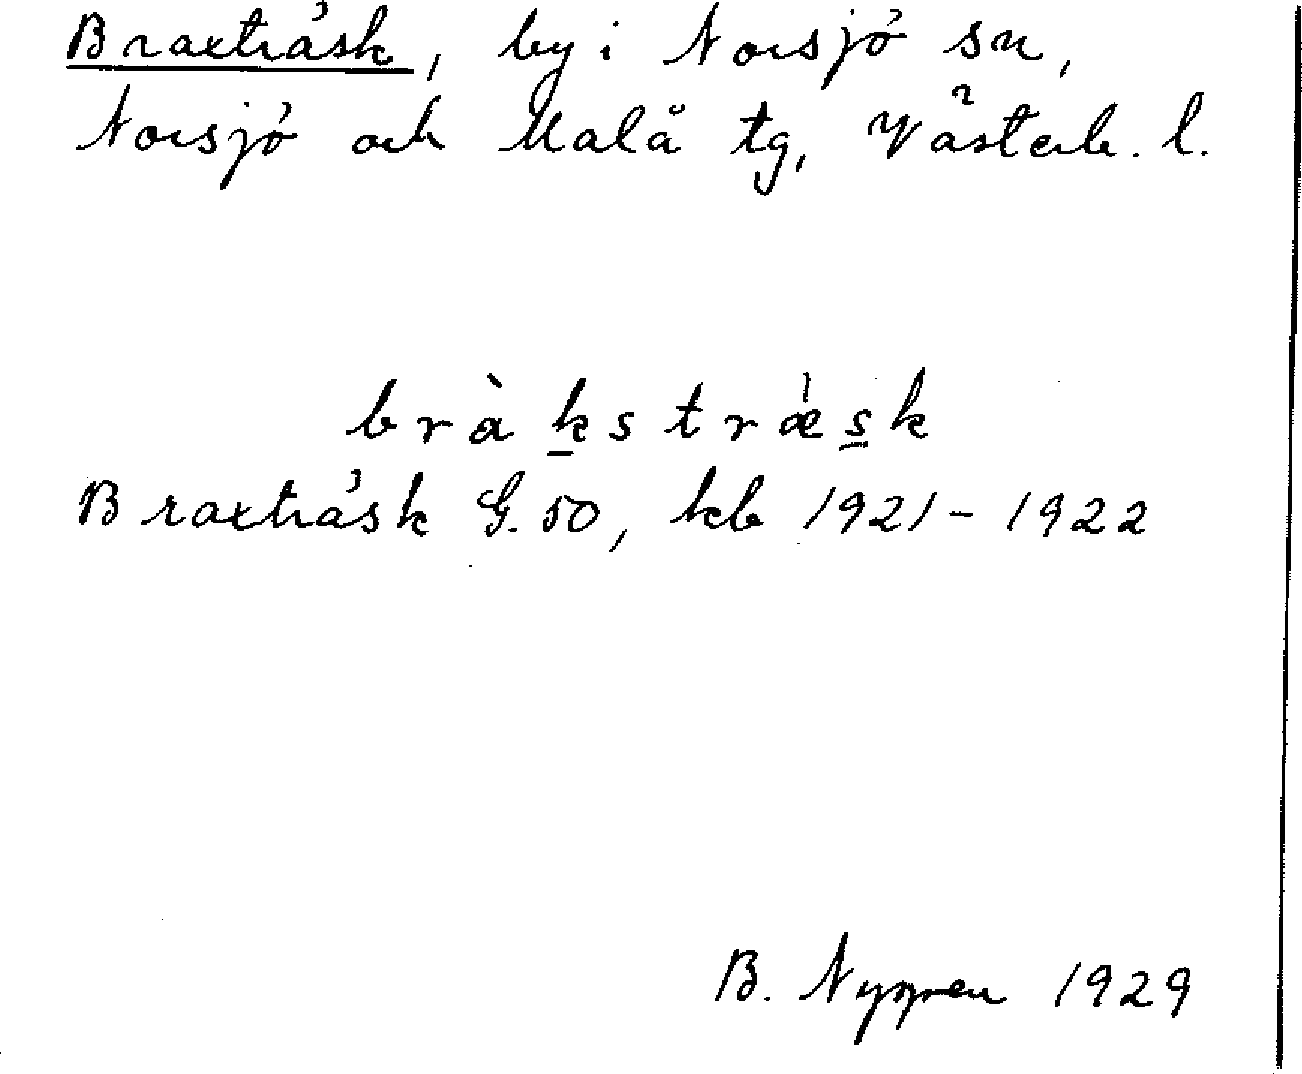 Braxträsk, by i Norsjö sn,
Norsjö och Malå tg, Västerb. l.
bràkstrǽsk
Braxträsk G. 50, kb 1921-1922
B. 1929